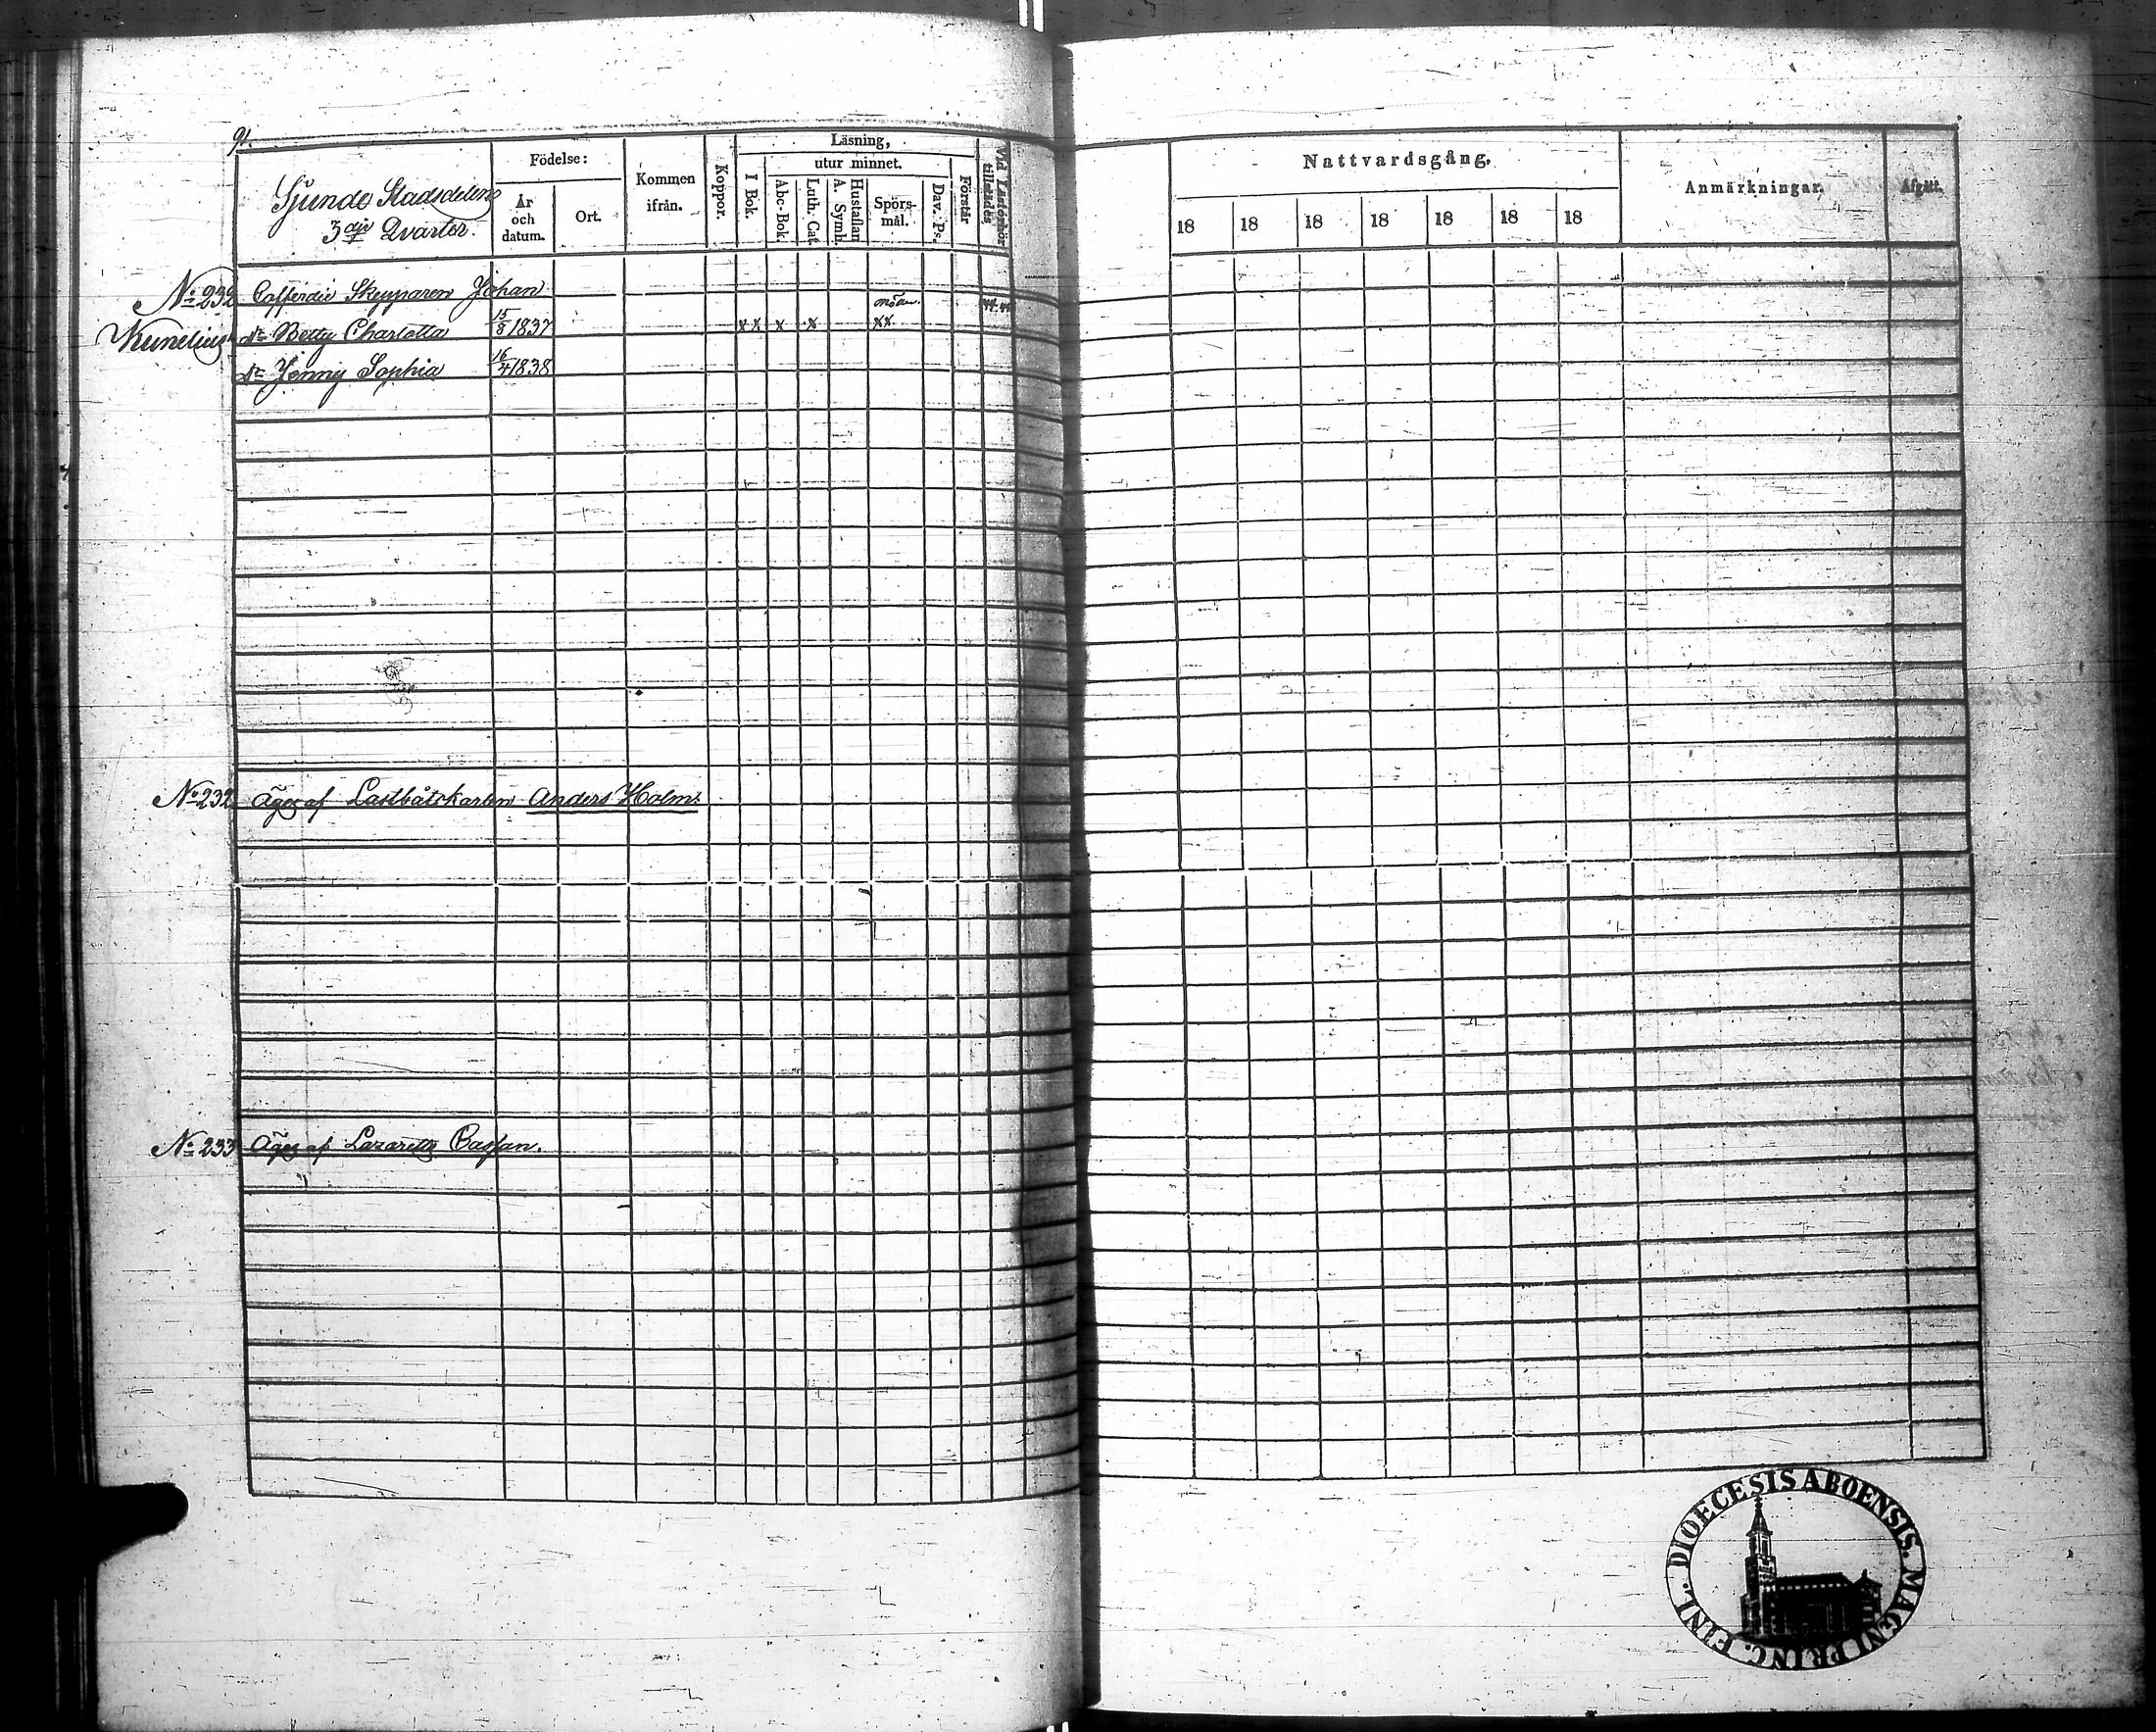 91.
Sjunde Stadsdelens
3dje Qvarter.
Födelse:
År och datum.
Ort.
Kommen ifrån.
Koppor.
Läsning,
utur minnet.
I Bok.
Abc-Bok.
Luth. Cat.
Hustaflan A. Symb.
Spörsmål.
Dav. Ps.
Förstår
Vid Läsförhör tillstädes
Nattvardsgång.
18 18 18 18 18 18 18
Anmärkningar.
Afgått.
No 232 Cofferdie Skepparen Johan
Kumelius dr Betty Charlotta 15/8 1837 x x x x xx
dr Jenny Sophia 16/4 1838
No 232 Äges af Lastbåtskarlen Anders Holm.
No 233 Äges af Lazaretts Cassan.
DIOECESIS ABOENSIS. MAGNI PRINC. FINL.